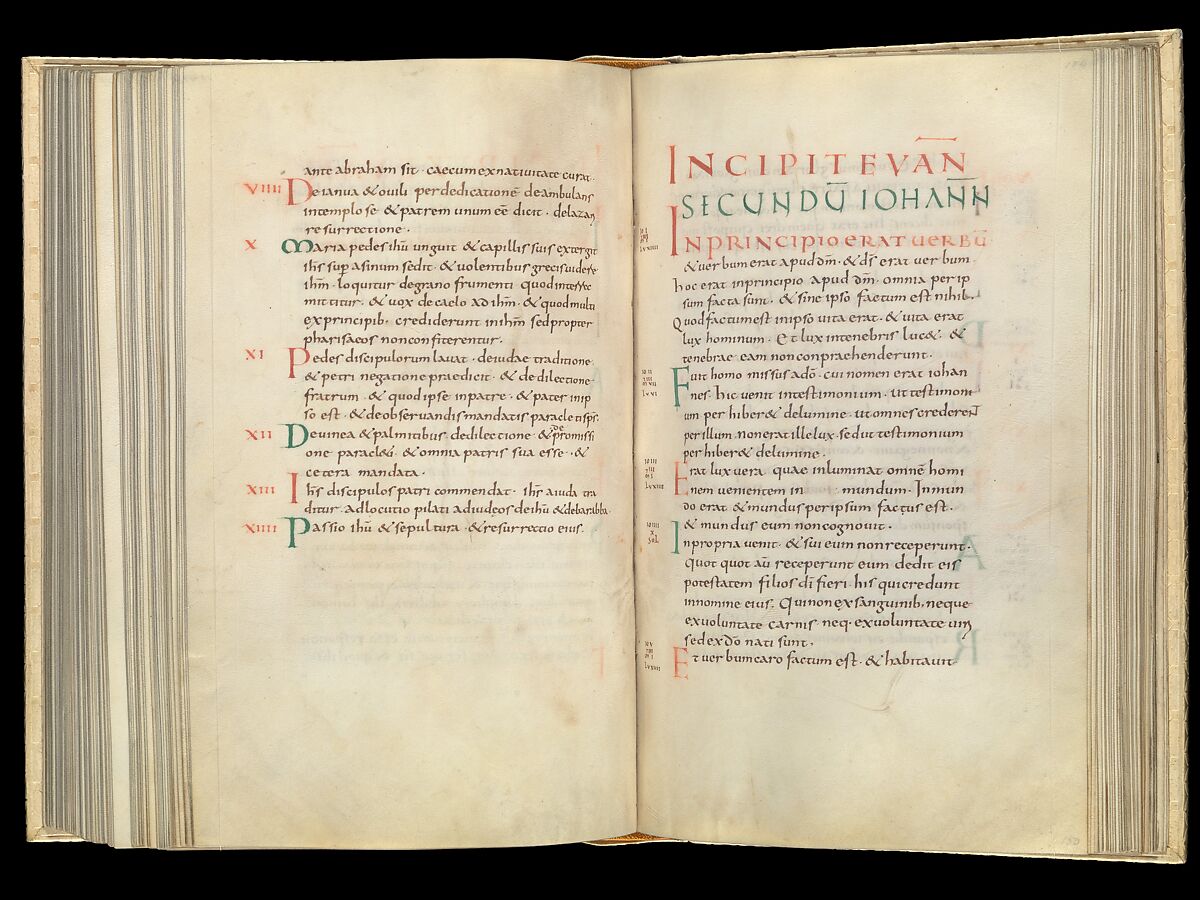 ante abraham sit · caecum ex nativitate curat ·
VIIII De ianua & ovili per dedicationē deambulans
in templo se & patrem unum eē dicit · de lazari
resurrectione ·
X Maria pedes ihū unguit & capillis suis extergit
ihs̄ sup̄ asinum sedit · & volentibus grecis videre
ihm̄ · loquitur de grano frumenti quod in terrae
mittitur · & vox de caelo ad ihm̄ · & quod multi
ex principib · crediderunt in ihm̄ sed propter
pharisaeos non confiterentur ·
XI Pedes discipulorum lavat · de iudae traditione
& petri negatione praedicit · & de dilectione
fratrum · & quod ipse in patre · & pater in ip
so est · & de observandis mandatis paracleti sps ·
XII De vinea & palmitibus de dilectione · & de promissi
one paracl&i · & omnia patris sua esse · &
cetera mandata ·
XIII Ihs̄ discipulos patri commendat · ihs̄ a iuda tra
ditur · adlocutio pilati ad iudęos de ihū & de barabba ·
XIIII Passio ihū & sepultura · & resurrectio eius ·
INCIPIT EVAN̄
SECUNDŪ IOHANN̄
IN PRINCIPIO ERAT UERBŪ
& verbum erat apud dm̄ · & ds̄ erat verbum
hoc erat in principio apud dm̄ · omnia per ip
sum facta sunt · & sine ipso factum est nihil ·
Quod factum est in ipso vita erat · & vita erat
lux hominum · Et lux in tenebris luc& · &
tenebrae eam non conpraehenderunt ·
Fuit homo missus a dō · cui nomen erat iohan
nes · hic venit in testimonium · ut testimoni
um perhiber& de lumine · ut omnes crederent
per illum · non erat ille lux · sed ut testimonium
perhiber& de lumine ·
Erat lux vera quae inluminat omnē homi
nem venientem in mundum · In mun
do erat & mundus per ipsum factus est ·
& mundus eum non cognovit ·
In propria venit · & sui eum non receperunt ·
quot quot aū receperunt eum dedit eis
potestatem filios dī fieri · his qui credunt
in nomine eius · Qui non ex sanguinib · neque
ex voluntate carnis neq · ex voluntate viri
sed ex dō nati sunt ·
Et verbum caro factum est · & habitavit